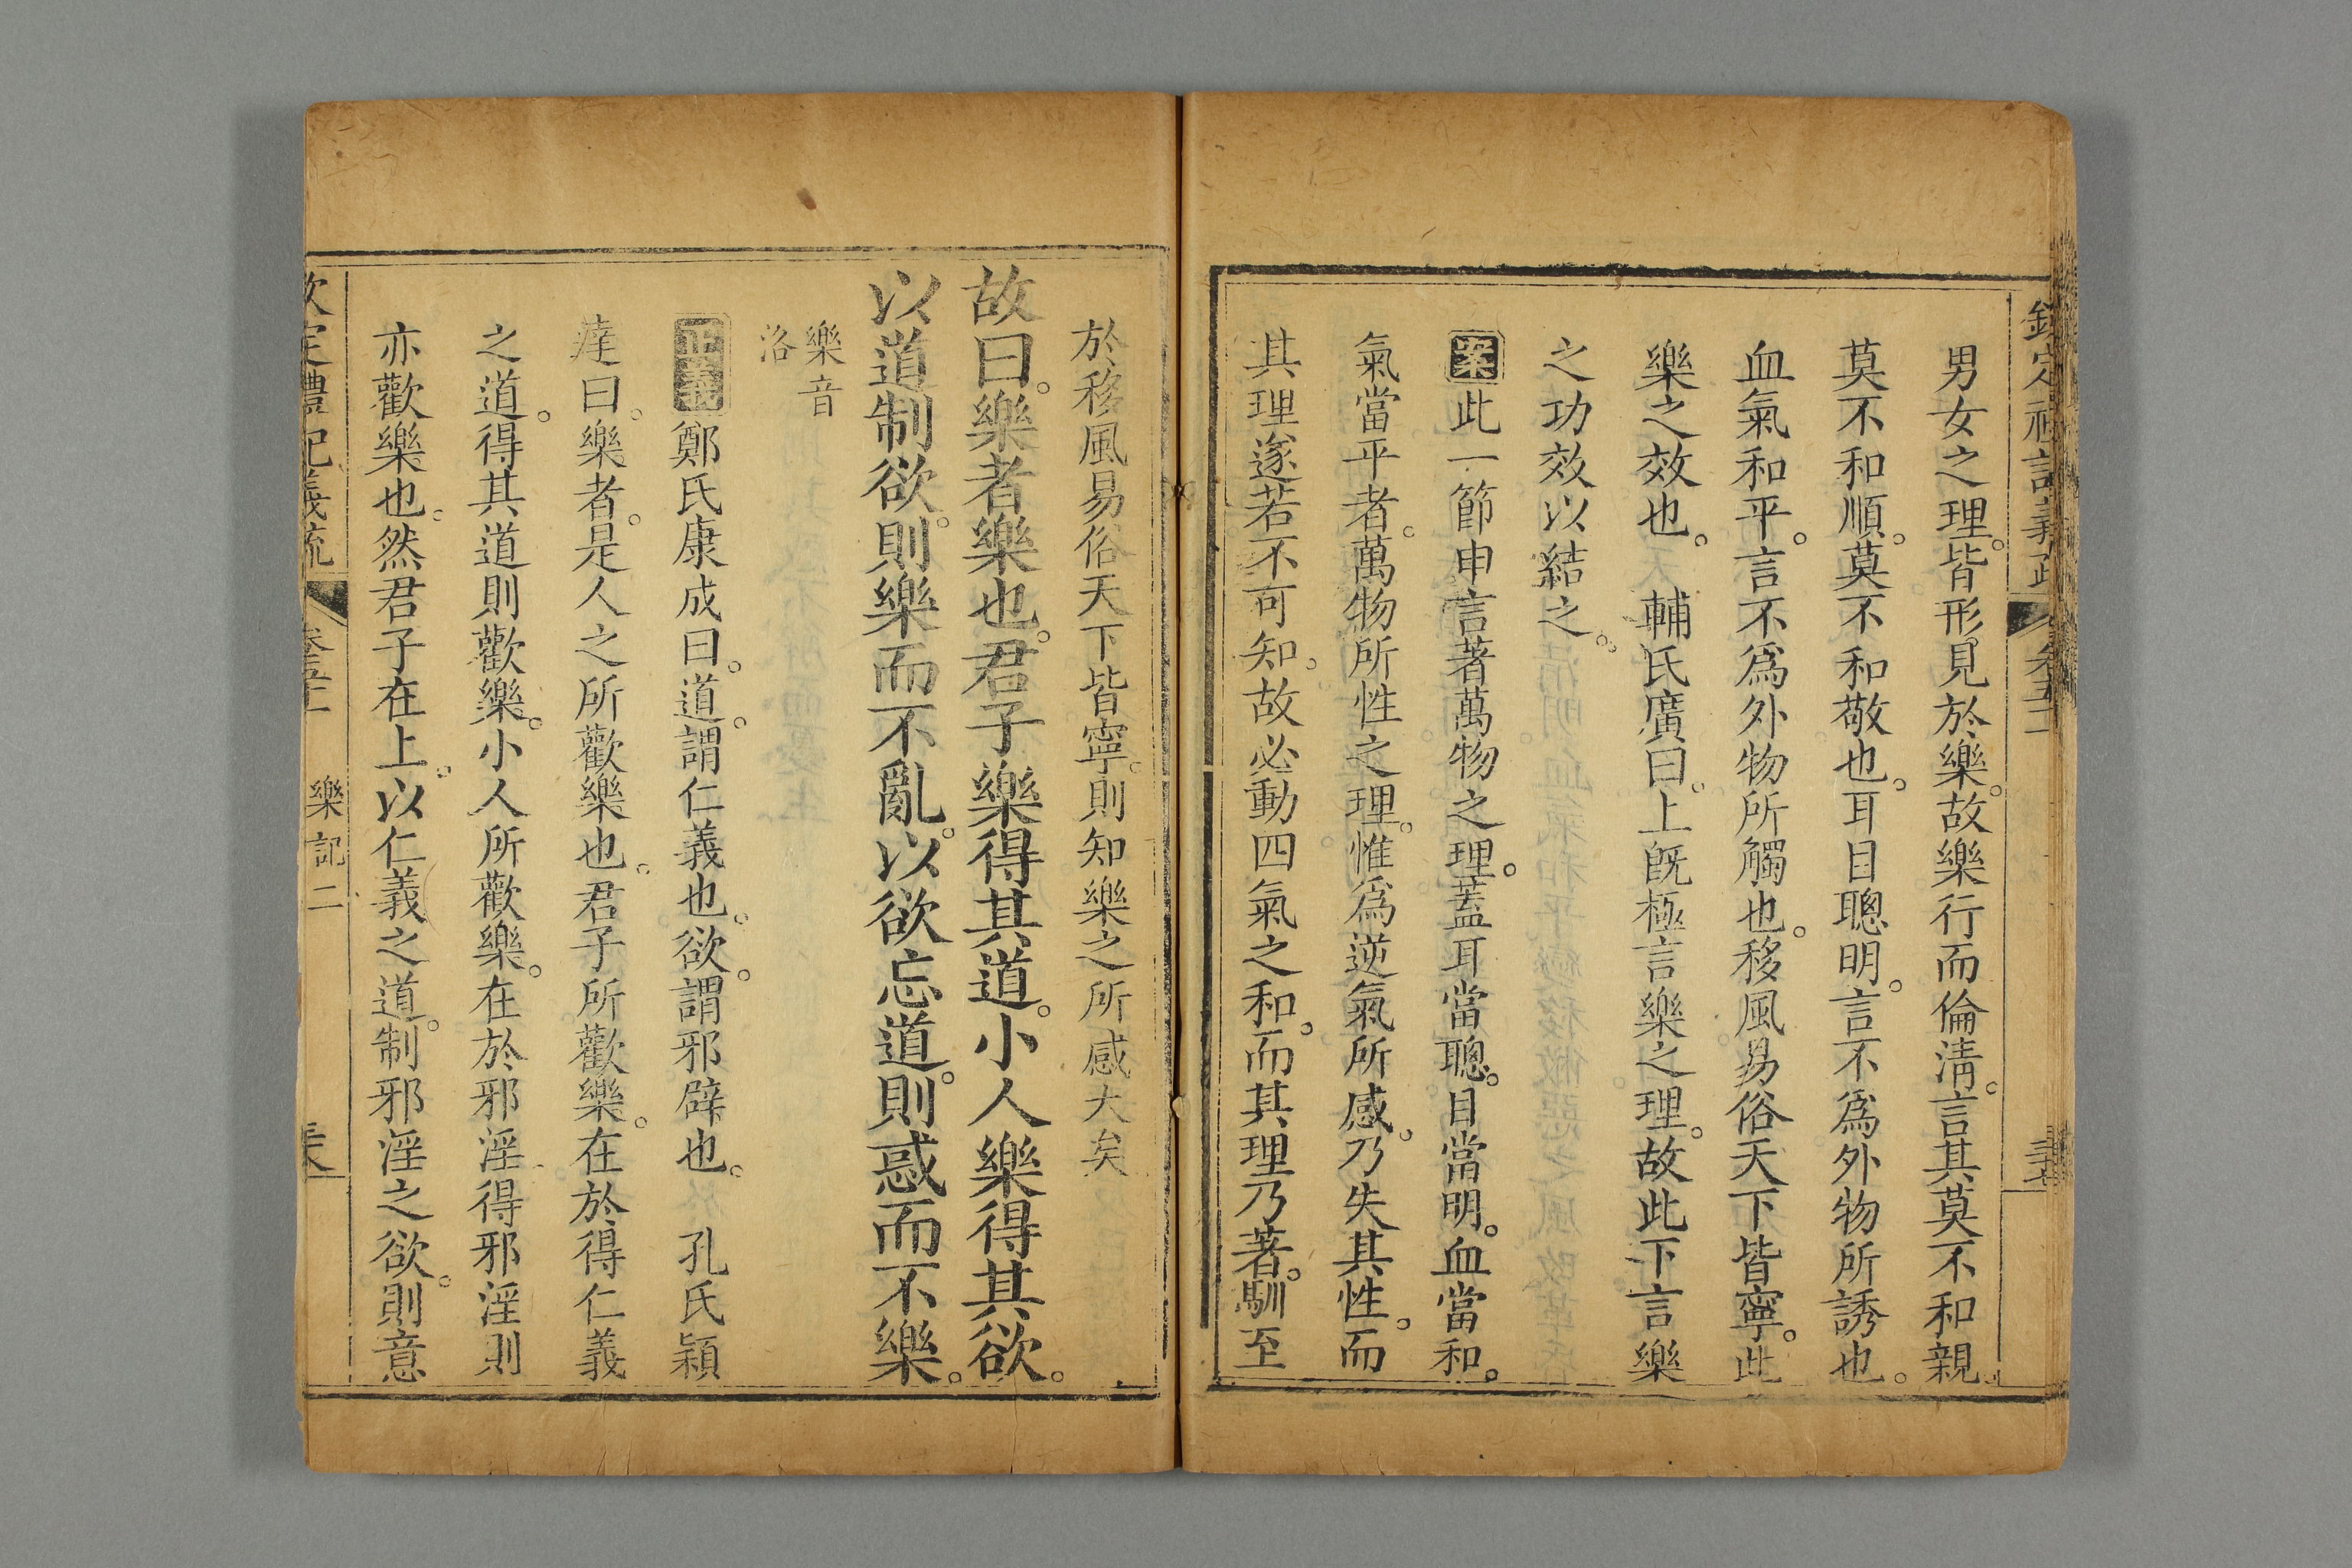 欽定禮記義疏 卷五十一 三十七
男女之理。皆形見於樂。故樂行而倫淸。言其莫不和親。
莫不和順。莫不和敬也。耳目聰明。言不爲外物所誘也。
血氣和平。言不爲外物所觸也。移風易俗天下皆寧。此
樂之效也。 輔氏廣曰。上旣極言樂之理。故此下言樂
之功效以結之。
案此一節申言著萬物之理。蓋耳當聰。目當明。血當和。
氣當平者。萬物所性之理。惟爲逆氣所感。乃失其性。而
其理遂若不可知。故必動四氣之和。而其理乃著。馴至
於移風易俗天下皆寧。則知樂之所感大矣
故曰。樂者樂也。君子樂得其道。小人樂得其欲。
以道制欲。則樂而不亂。以欲忘道。則惑而不樂。
樂音
洛
正義鄭氏康成曰。道。謂仁義也。欲。謂邪辟也。 孔氏穎
達曰。樂者。是人之所歡樂也。君子所歡樂。在於得仁義
之道。得其道則歡樂。小人所歡樂。在於邪淫。得邪淫則
亦歡樂也。然君子在上。以仁義之道。制邪淫之欲。則意
欽定禮記義疏 樂記二